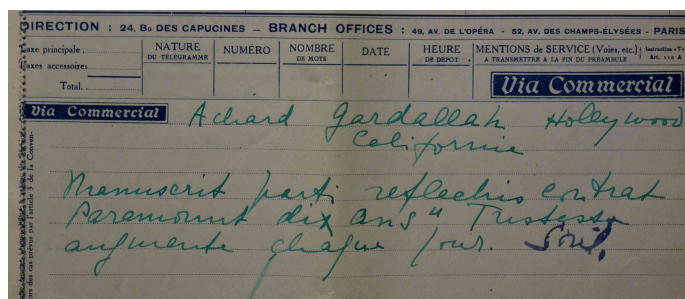 DIRECTION : 24, BD DES CAPUCINES — BRANCH OFFICES : 49, AV. DE L'OPÉRA - 52, AV. DES CHAMPS-ÉLYSÉES - PARIS
Taxe principale . NATURE DU TÉLÉGRAMME NUMÉRO NOMBRE DE MOTS DATE HEURE DE DÉPOT MENTIONS de SERVICE (Voies, etc.) A TRANSMETTRE A LA FIN DU PRÉAMBULE
Taxes accessoires
Total
Via Commercial
Via Commercial
Achard Gardallah Hollywood
Californie
Manuscrit parti reflechis contrat
Paramount dix ans " Tristesse
augmente chaque jour.
ors des cas prévus par l'article 3 de la Conven-